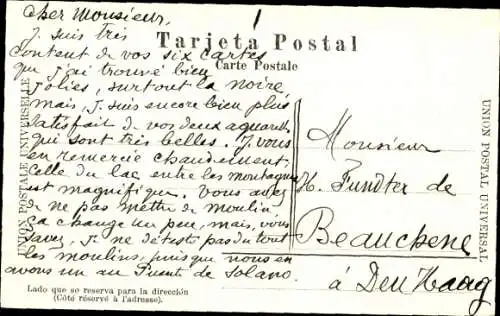 Cher Monsieur,
J. suis très
content de vos six cartes
que j'ai trouvé bien
jolies, surtout la noire,
mais, j. suis encore bien plus
satisfait de vos deux aquarell.
qui sont très belles. J. vous
en remercie chaudement.
Celle du lac entre les montagnes
est magnifique. Vous avez
de ne pas mettre de moulin,
ça change un peu, mais, vous
savez, j. ne déteste pas du tout
les moulins, puisque nous en
avons un au Puente de Solano.
Tarjeta Postal
Carte Postale
UNION POSTALE UNIVERSELLE
UNION POSTAL UNIVERSAL
Monsieur
H. Fundter de
Beauchene
à Den Haag
Lado que se reserva para la dirección
(Côté réservé à l'adresse).